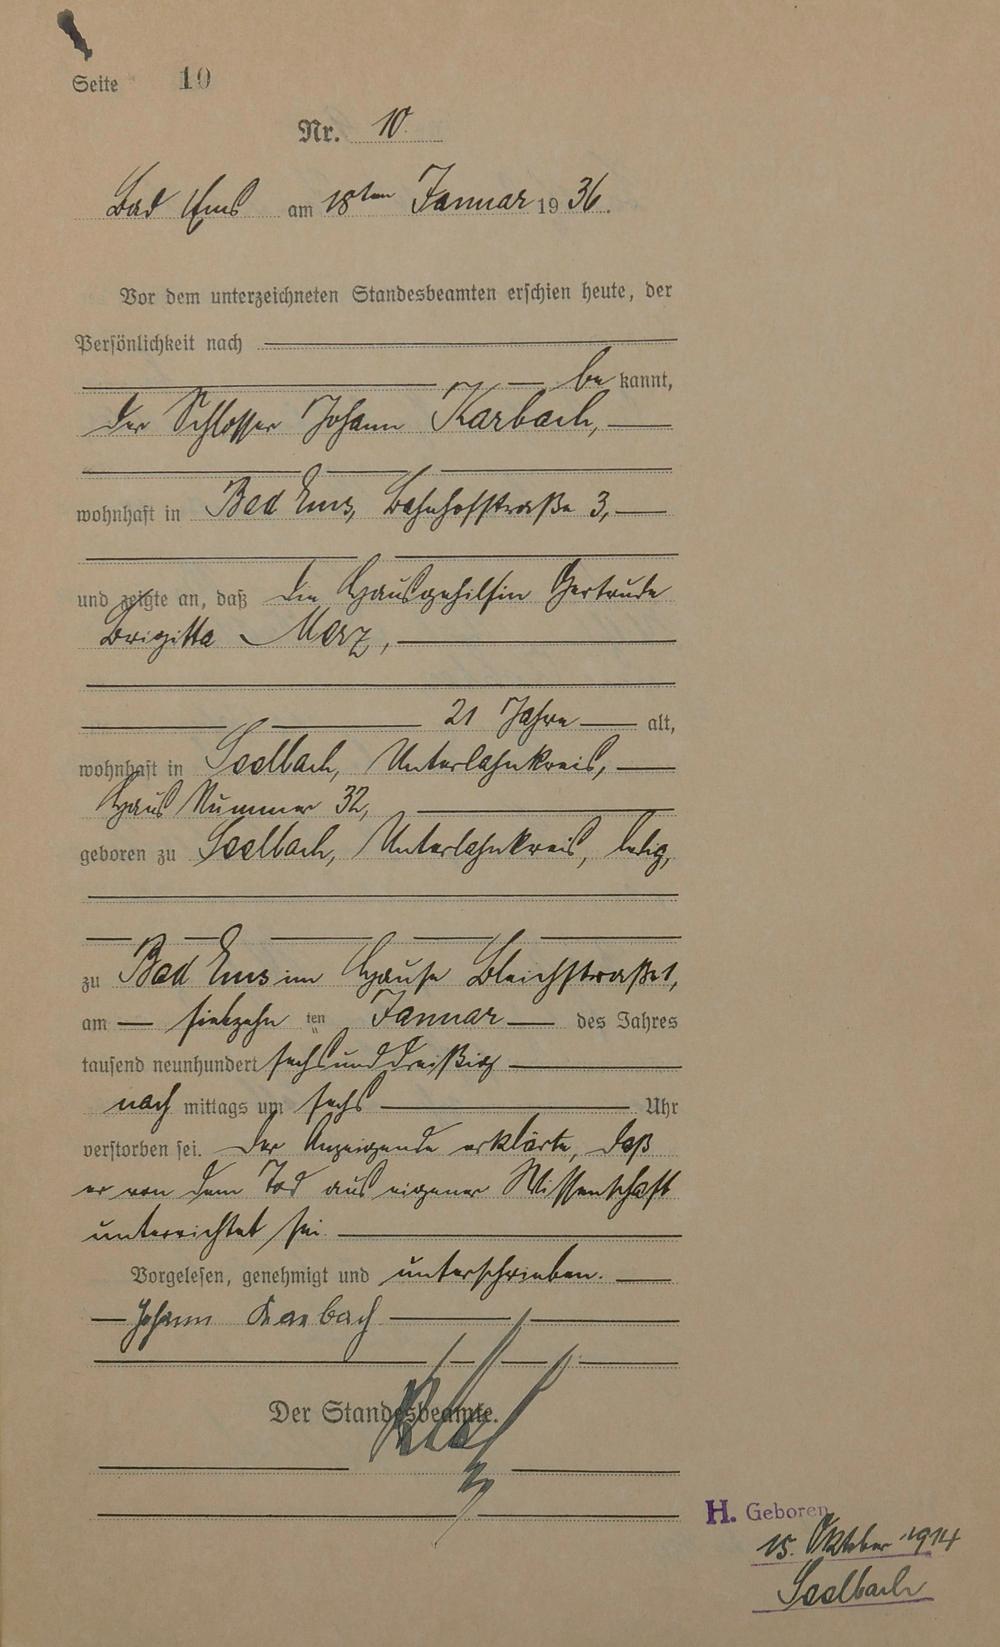 Seite 10
Nr. 10.
Bad Ems am 18ten Januar 1936.
Vor dem unterzeichneten Standesbeamten erschien heute, der
Persönlichkeit nach
bekannt,
der Schlosser Johann Karbach,
wohnhaft in Bad Ems, Bahnhofstraße 3,
und zeigte an, daß die Hausgehilfin Gertrude
Brigitta Merz,
21 Jahre alt,
wohnhaft in Seelbach, Unterlahnkreis,
Haus Nummer 32,
geboren zu Seelbach, Unterlahnkreis, ledig,
zu Bad Ems im Hause Bleichstraße 1,
am siebzehnten Januar des Jahres
tausend neunhundert sechsunddreißig
nachmittags um sechs Uhr
verstorben sei. Der Anzeigende erklärte, daß
er von dem Tod aus eigener Wissenschaft
unterrichtet sei.
Vorgelesen, genehmigt und unterschrieben.
Johann Karbach
Der Standesbeamte.
H. Geboren
15. Oktober 1914
Seelbach